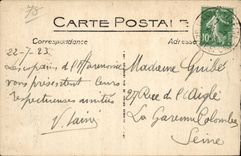 78
CARTE POSTALE
Correspondance
Adresse
22-7-23
Les copains d'Harmonie
vous présentent leurs
respectueuses amitiés
Madame Guibé
27 Rue de l'Aigle
La Garenne Colombes
Seine